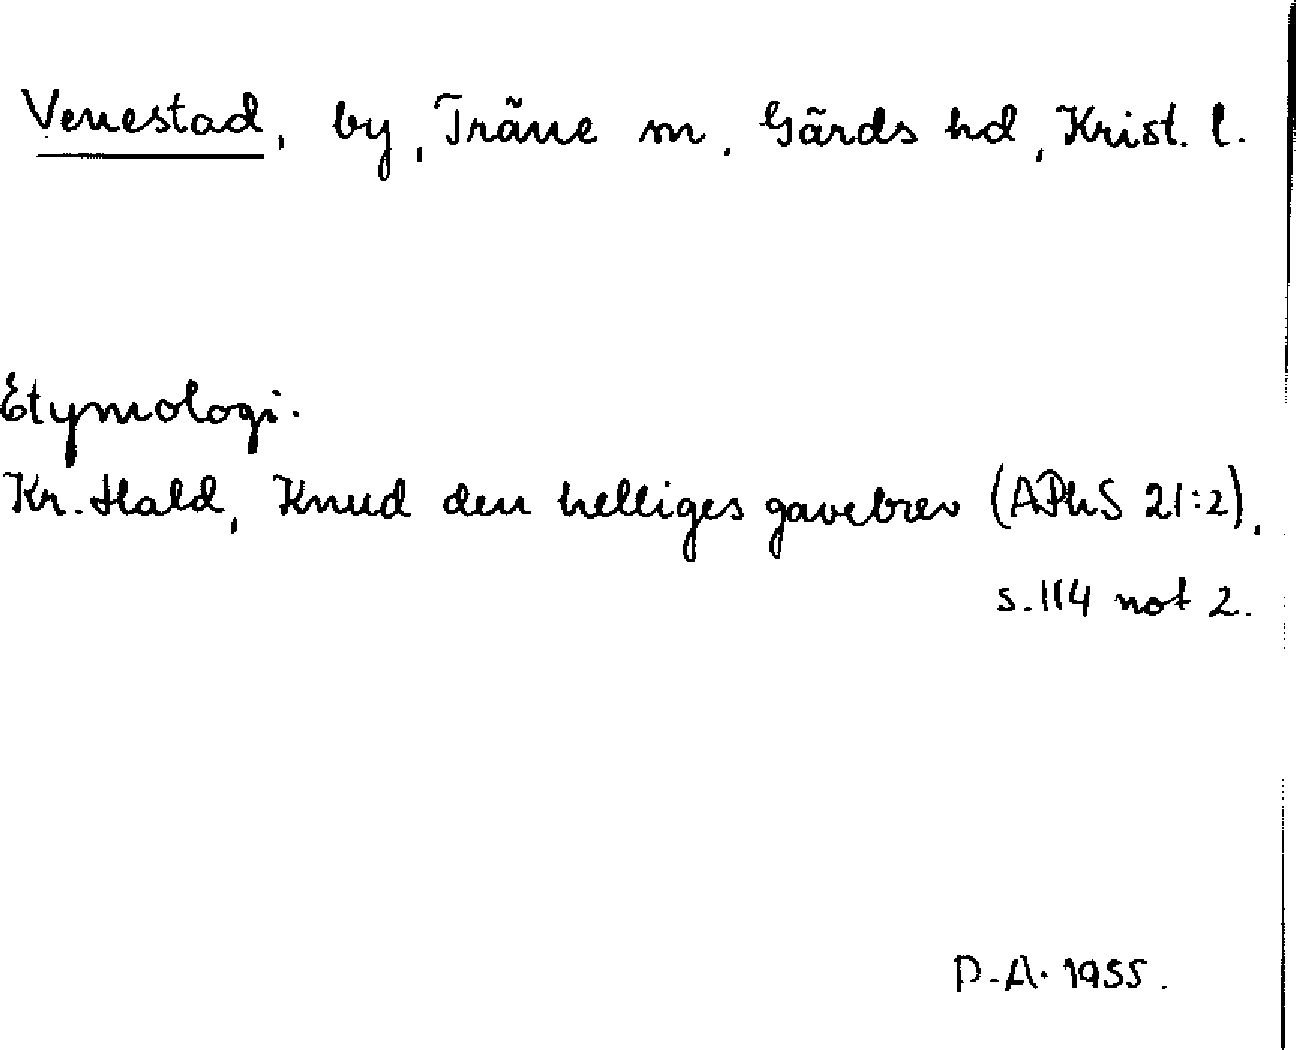 Venestad, by, Träne sn. Gärds hd, Krist. l.
Etymologi.
Kr. Hald, Knud den helliges gavebrev (APhS 21:2),
s. 114 not 2.
P.A. 1955.